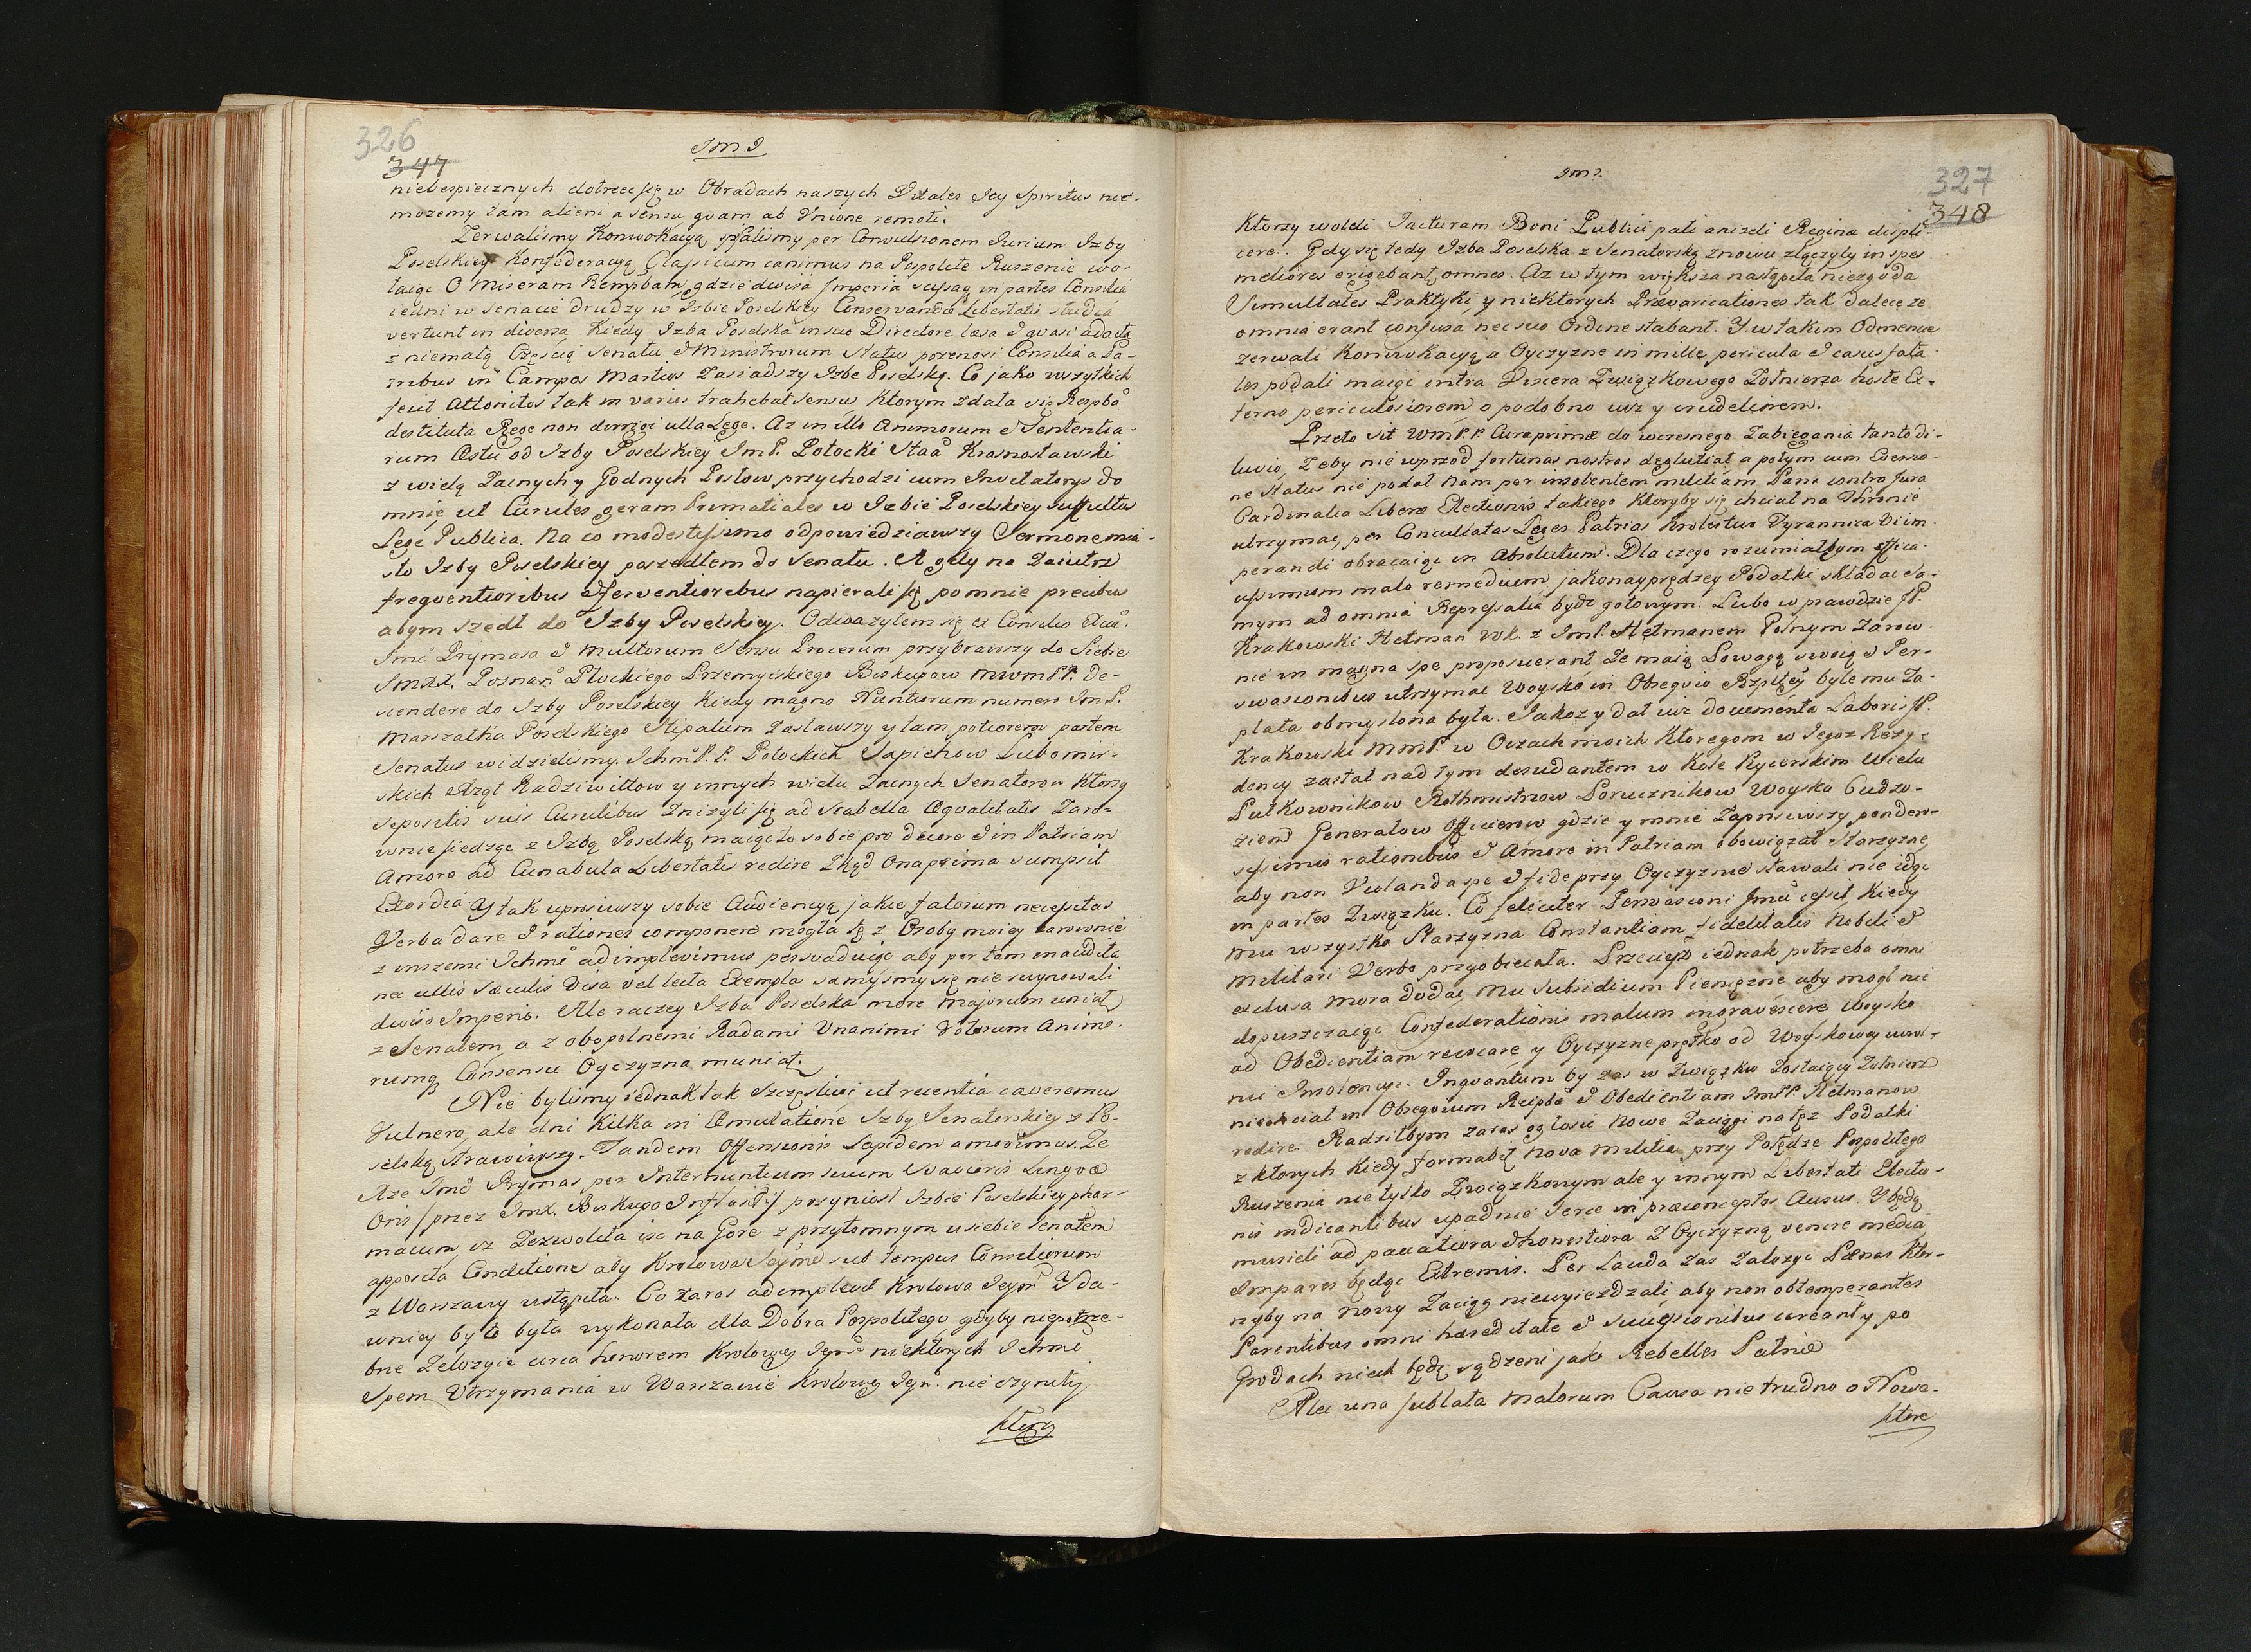 326
347
Im I
niebespiecznych dotrzeć się w Obradach naszych Vitales Jey Spiritus nie-
możemy tam alieni a sensu qvam ab Vnione remoti.
Zerwalismy Konwokacyą per Convulsionem Iurium Izby
Poselskiey Konfederacyą Classicum canimus na Pospolite Ruszenie wo-
łaiąc O Miseram Rempbam, gdzie divisa Imperia in partes Consilia
iedni w Senacie drudzy w Izbie Poselskiey Conservandæ Libertatis studia
vertunt in diversa, Kiedy Izba Poselska in suo Directore læsa I qvasi adacta
z niemałą Częścią Senatu I Ministrorum Status przenosi Consilia a Pa-
tribus in Campos Martios Zasiadszy Izbe Poselską. Co jako wszytkich
fecit Attonitos tak in varios trahebat sensus Ktorym zdała się Respba
destituta Rege non dirigi ulla Lege. Az in illo Animorum I Sententia-
rum Æstu od Izby Poselskiey ImP. Potocki Staa Krasnostawski
z wielą Zacnych y Godnych Posłow przychodzi cum Invitatorys do
mnię ut Curules geram Primatiales w Izbie Poselskiey suffultus
Lege Publica. Na co modestissimo odpowiedziawszy Sermone mia-
sto Izby Poselskiey poszedłem do Senatu. A gdy na Zaiutrz
freqventioribus I ferventioribus napierali się pomnie precibus
abym szedł do Izby Poselskiey. Odwazyłem się ex Consilio Xcia.
Imci Prymasa I Multorum Sensu Procerum przybrawszy do Siebie
ImXX. Poznań Płockiego Przemyskiego Biskupow MwmPP. De-
scendere do Izby Poselskiey Kiedy magno Nuntiorum numero ImP.
Marszałka Poselskiego Stipatum Zastawszy y tam potiorem partem
Senatus widzielismy. IchmP.P. Potockich Sapiehow Lubomir-
skich Xżąt Radziwiłłow y innych wielu Zacnych Senatorow Ktorzy
sepositis suis Curulibus Zniżyli się ad scabella Æqvalitatis Zaro-
wnie siedząc z Izbą Poselską maiąc to sobie pro decore I in Patriam
Amore ad Cunabula Libertatis redire Zkąd Ona prima sumpsit
Exordia Y tak uprosiwszy sobie Audiencyą, jakie fatorum necessitas
Verba dare I rationes componere mogła się z Osoby moiey zarownie
z inszemi Ichmc adimplevimus perswaduiąc aby per tam inaudita
nec ullis sæculis visa vel lecta Exempla samysmy się nie ruynowali
diviso Imperio. Ale raczey Izba Poselska more Majorum uniat
z Senatem a z obopolnemi Radami Vnanimi Votorum Animo-
rumq Consensu Oyczyzna muniat.
Nie bylismy iednak tak Szczęsliwi ut recentia caveremus
Vulnera, ale dni Kilka in Æmulatione Izby Senatorskiey z Po-
selską strawiwszy. Tandem Offensionis Lapidem amovimus. Ze
Xże Imc Prymas per Internuntium suum Suavioris Lingvæ
Oris /przez Imx. Biskupa Inflant:/ przyniosł Izbie Poselskiey phar-
macum, iz Zezwoliła iść na Gore z przytomnym u siebie Senatem
apposita Conditione aby Krolowa Ieyme sub tempus Consiliorum
z Warszawy ustąpiła. Co zaraz adimplevit Krolowa Ieym Y da-
wniey by to była wykonała dla Dobra Pospolitego gdyby niepotrze-
bne Zelozyie circa honorem Krolowey Iymc niektorych Ichmc
Spem Vtrzymania w Warszawie Krolowey Iym. nie czyniły
Ktorzy
Im I.
327
348
Ktorzy woleli Iacturam Boni Publici pati anizeli Reginæ displi-
cere. Gdy się tedy Izba Poselska z Senatorską znowu złączyły in spes
meliores erigebant omnes. Az w tym większa nastąpiła niezgoda
Simultates Praktyki, y niektorych Prævaricationes tak dalece ze
omnia erant confusa nec suo Ordine stabant. Y w takim Odmęcie
zerwali Konwokacyą a Oyczyzne in mille pericula I casus fata-
les podali maiąc intra Viscera Związkowego Żołnierza hoste Ex-
terno periculosiorem a podobno iuz y crudeliorem.
Przeto sit WmP.P. Cura prima do wczesnego Zabiegania tanto di-
luvio, Zeby nie wprzod fortunas nostras deglutiat a potym cum Everso-
ne Status nie podał Nam per insolentem militiam Pana contra Jura
Cardinalia Liberæ Electionis takiego Ktoryby się chciał na Thronie
utrzymać, per Conculcatas Leges Patrias Krolestwo Tyrannica Vi im-
perandi obracaiąc in Absolutum. Dla czego rozumiałbym effica-
cissimum malo remedium jakonayprędzey Podatki składać Sa-
mym ad omnia Repressalia bydz gotowym. Lubo wprawdzie JP.
Krakowski Hetman WK. z ImP. Hetmanem Polnym Zarow-
nie in magna spe proposuerant Ze maią Powagą swoią I Per-
swasionibus utrzymać Woysko in Obseqvio Rzpltey byle mu Za-
płata obmyslona była. Iakoz y dał iuz documenta Laboris JP.
Krakowski MmP. w Oczach moich Ktoregom w Iegoz Rezy-
dency zastał nad tym desudantem w Kole Rycerskim wielu
Pułkownikow Rothmistrzow Porucznikow Woyska Cudzo-
ziem Generałow Officierow gdzie y mnie Zaprosiwszy ponder-
sissimis rationibus I Amore in Patriam obowiązał Starszyznę
aby non Violanda spe I fide przy Oyczyznie stawali nie idąc
in partes Związku. Co feliciter Perswasioni Jmci cessit, Kiedy
Mu wszystka Starszyzna Constantiam fidelitatis Nobili I
Militari Verbo przyobiecała. Przecięz iednak potrzeba omni
exclusa mora dodać Mu Subsidium Pieniężne aby mogł nie
dopuszczaiąc Confederationis malum ingravescere Woysko
ad Obedientiam revocare y Oyczyzne prętko od Woyskowey uwol-
nić Insolencyi. Inqvantum by zas w Związku Zostaiący Żołnierz
niechciał in Obseqvium Reipba I Obedientiam ImPP. Hetmanow
redire. Radziłbym zaras ogłosić Nowe Zaciągi na tęz Podatki
z ktorych Kiedy formabit Nova Militia przy Potędze Pospolitego
Ruszenia nie tylko Związkowym ale y innym Libertati Electio-
nis indicantibus upadnie Serce in præconceptos Ausus. Y będą
musieli ad pacatiora I honestiora Z Oyczyzną venire media
Impares będąc Extremis. Per Lauda Zas Załozyć Pœnas Kto-
ryby na Nowy Zaciąg niewyiezdzali aby non obtemperantes
Parentibus omni hæreditate I successionibus careant y po
Grodach niech będą sądzeni jako Rebelles Patriæ
Ale una sublata Malorum Causa nie trudno o Nowe-
ktore